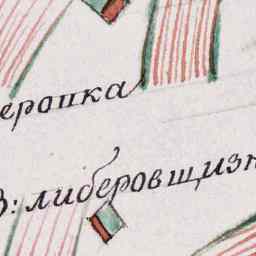 еропка
З: либеровщизн